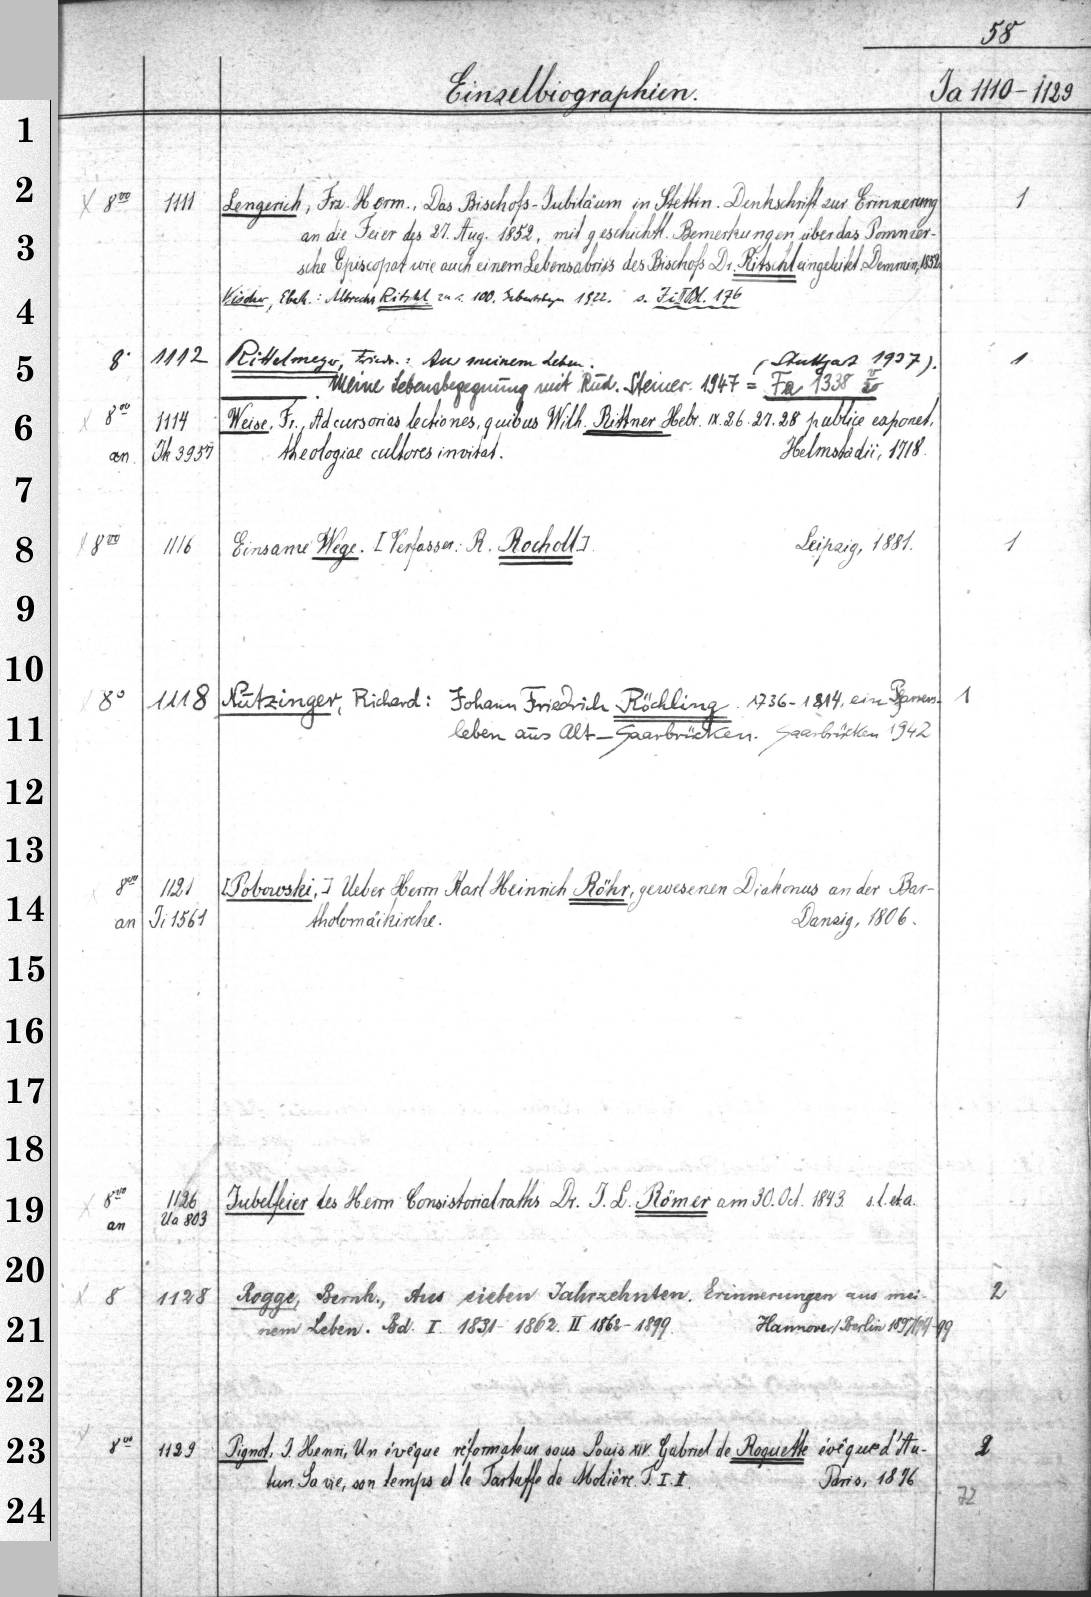 58
Einzelbiographien. Ja 1110-1129
1
2
3
4
5
6
7
8
9
10
11
12
13
14
15
16
17
18
19
20
21
22
23
24
X 8vo 1111 Lengerich, Frz. Herm., Das Bischofs-Jubiläum in Stettin. Denkschrift zur Erinnerung 1
an die Feier des 27. Aug. 1852, mit geschichtl. Bemerkungen über das Pommer-
sche Episcopat wie auch einem Lebensabriss des Bischofs Dr. Ritschl eingeleitet. Demmin, 1852
Vischer, Eberh.: Albrecht Ritschl zu s. 100. Geburtstage 1922. s.
8° 1112 Rittelmeyer, Friedr.: Aus meinem Leben. (Stuttgart 1937). 1
Meine Lebensbegegnung mit Rud. Steiner. 1947 = Fa 1338
X 8vo 1114 Weise, Fr., Ad cursorias lectiones, quibus Wilh. Rittner Hebr. IX. 26. 27. 28 publice exponet,
an Jh 3957 theologiae cultores invitat. Helmstadii, 1718.
X 8vo 1116 Einsame Wege. [Verfasser: R. Rocholl]. Leipzig, 1881. 1
8° 1118 Nutzinger, Richard: Johann Friedrich Röchling. 1736-1814, ein Pfarrers- 1
leben aus Alt-Saarbrücken. Saarbrücken 1942
8vo 1121 [Pobowski,] Ueber Herrn Karl Heinrich Röhr, gewesenen Diakonus an der Bar-
an Ji 1561 tholomäikirche. Danzig, 1806.
X 8vo 1126 Jubelfeier des Herrn Consistorialraths Dr. J. L. Römer am 30. Oct. 1843. s.l. et a.
an Ua 803
X 8 1128 Rogge, Bernh., Aus sieben Jahrzehnten. Erinnerungen aus mei- 2
nem Leben. Bd. I 1831-1862. II 1862-1899. Hannover/Berlin 1897-99
8vo 1129 Pignot, J. Henri, Un évêque réformateur sous Louis XIV. Gabriel de Roquette évêque d'Au- 2
tun. Sa vie, son temps et le Tartuffe de Molière. T. I. II. Paris, 1876
72